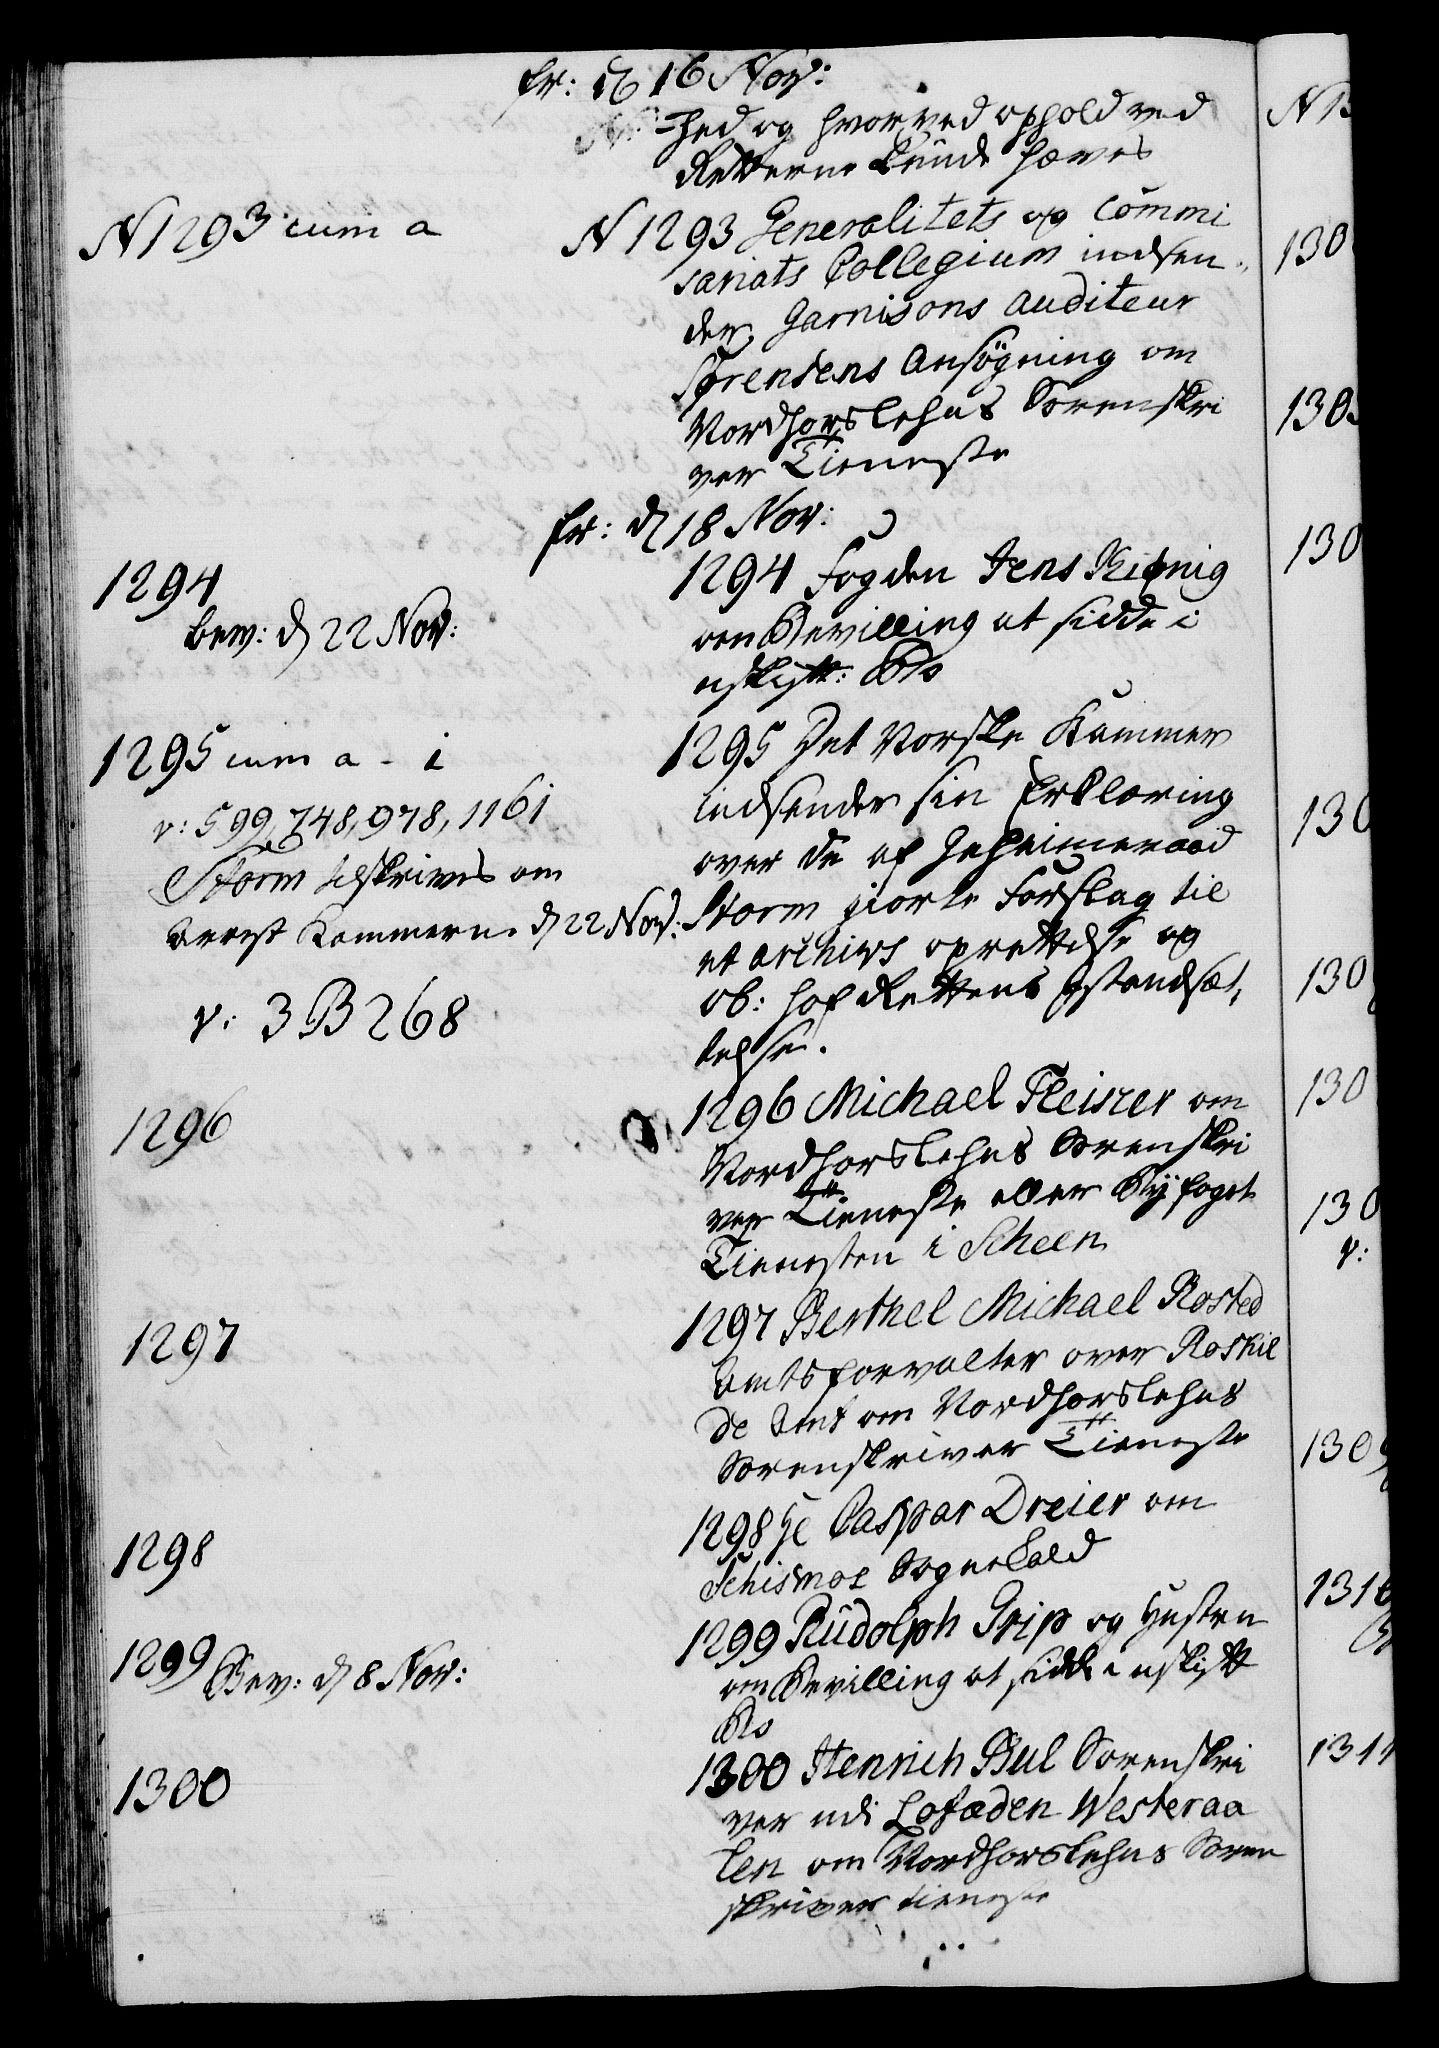 fr: d 16 Nov:
hed og hvorved ophold ved
Retterne kunde hæves
N 1293 cum a
N 1293 Generalitets og Commi
sariats Collegium indsen-
der Garnisons Auditeur
Sørensens Ansøgning om
Nordhorslehns Sorenskri
ver Tieneste
fr: d 18 Nov:
1294
bev: d 22 Nov:
1294 Fogden Jens Kiønig
om Bevilling at sidde i
uskift: Bo
1295 cum a - i
v: 599, 748, 978, 1161
Storm tilskrives om
Arrest Kammerne d 22 Nov:
v: 3 B 268
1295 Det Norske Kammer
indsender sin Erklæring
over de af Geheimeraad
Storm giorte Forslag til
et archivs oprettelse og
Ob: Hof Rettens Istandsæt-
telse.
1296
1296 Michael Fleiszer om
Nordhorslehns Sorenskri
ver Tieneste eller Byfoget
Tienesten i Scheen
1297
1297 Berthel Michael Rosted
Amtsforvalter over Roskil
de Amt om Nordhorslehns
Sorenskriver Tieneste
1298
1298 Hr Caspar Dreier om
Schismoe Sognekald
1299 Bev: d 8 Nov:
1299 Rudolph Grip og Hustru
om Bevilling at sidde i uskift
Bo
1300
1300 Henrich Bul Sorenskri
ver udi Lofæden Westeraa
len om Nordhorslehns Soren
skriver tieneste